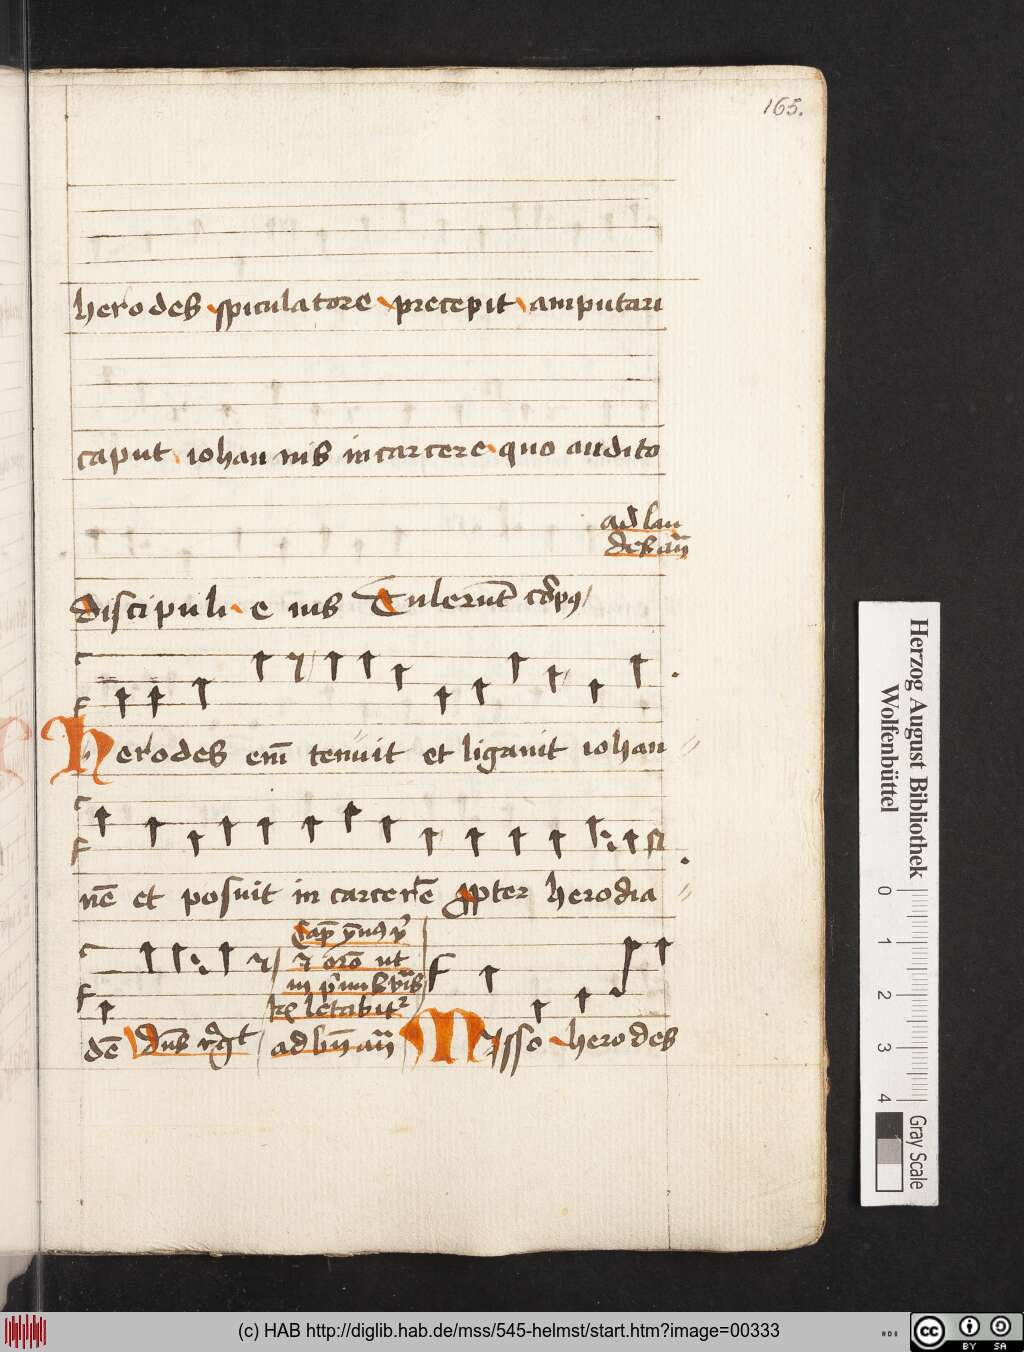 165.
herodes spiculatore precepit amputari
caput iohannis in carcere quo audito
ad lau
des an̄
discipuli eius Tulerūt corpꝰ
herodes em̄ tenuit et ligauit iohan
nē et posuit in carcerē ꝓpter herodia
Cap̄
⁊ orō ut
letabitᷣ
dē dn̄s ad bn̄ an̄ Misso herodes
Herzog August Bibliothek
Wolfenbüttel
0 1 2 3 4
Gray Scale
(c) HAB http://diglib.hab.de/mss/545-helmst/start.htm?image=00333
cc BY SA